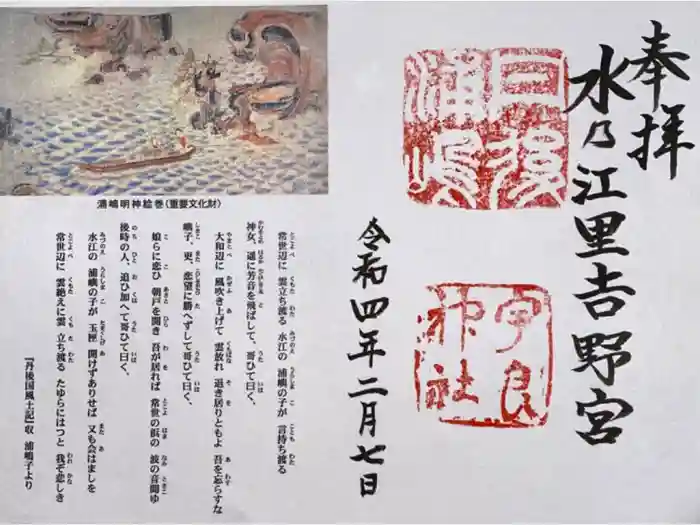 奉拝
水乃江里吉野宮
丹後
浦嶋
宇良
神社
令和四年二月七日
浦嶋明神絵巻(重要文化財)
常世辺に 雲立ち渡る 水江の 浦嶼の子が 言持ち渡る
神女、遥に芳音を飛ばして、哥ひて曰く、
大和辺に 風吹き上げて 雲放れ 退き居りともよ 吾を忘らすな
嶼子、更、恋望に勝へずして哥ひて曰く、
娘らに恋ひ 朝戸を開き 吾が居れば 常世の浜の 波の音聞ゆ
後時の人、追ひ加へて哥ひて曰く、
水江の 浦嶼の子が 玉匣 開けずありせば 又も会はましを
常世辺に 雲絶えに雲 立ち渡る たゆらにはつと 我ぞ悲しき
『丹後国風土記』収 浦嶋子より